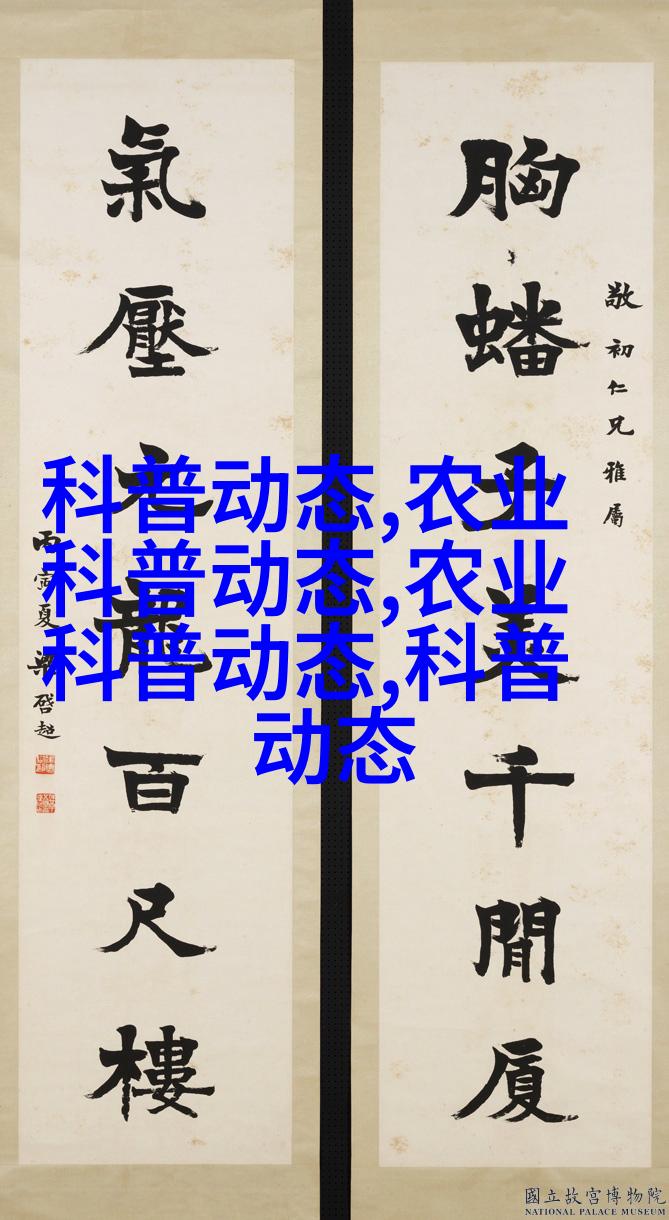 敬初仁兄雅屬
胸蟠子美千間厦
氣壓元龍百尺樓
丙寅夏梁啓超
科普动态,农业
科普动态,农业
科普动态,科普
动态
國立故宮博物院
NATIONAL PALACE MUSEUM